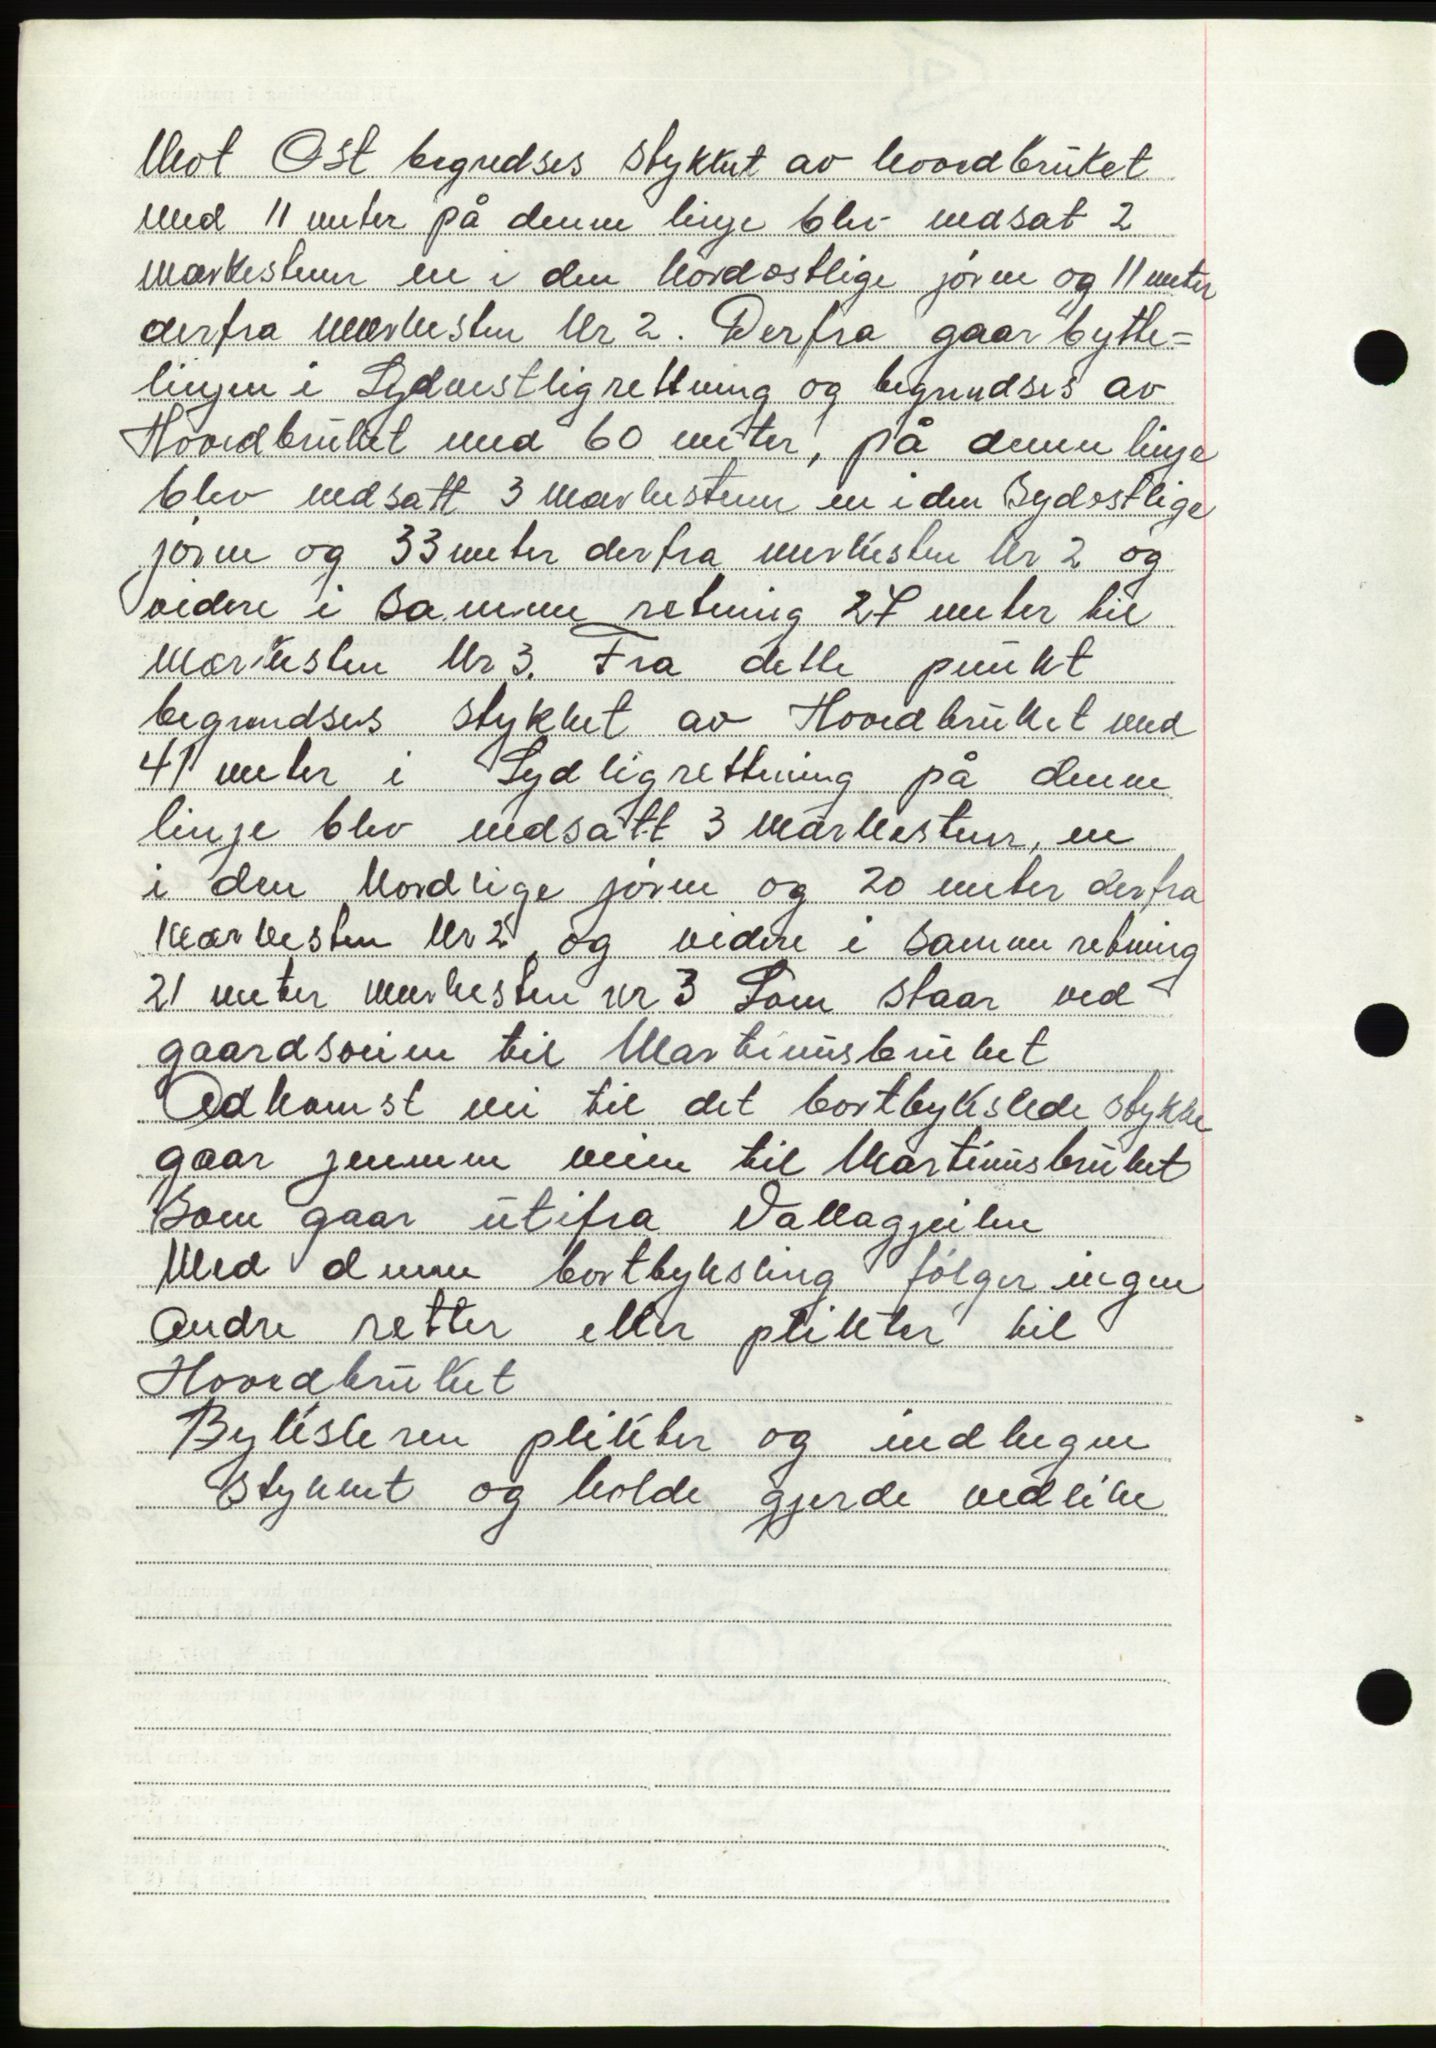 Mot Øst begredses stykket av hovedbruket
med 11 meter på denne linje blev nedsat 2
merkestener en i den Nordøstlige jörne og 11 meter
derfra merkesten Nr 2. Derfra gaar bytte=
linjen i Sydvestligrettning og begrendses av
Hovedbruket med 60 meter, på denne linje
blev nedsatt 3 merkestener en i den Sydøstlige
jörne og 33 meter derfra merkesten Nr 2 og
videre i samme retning 27 meter til
merkesten Nr 3. Fra dette punkt
begrendses stykket av Hovedbruket med
41 meter i Sydligrettning på denne
linje blev nedsatt 3 merkestener, en
i den Nordlige jörne og 20 meter derfra
merkesten Nr 2, og videre i samme retning
21 meter merkesten nr 3 Som staar ved
gaardsveien til Martinusbruket
Adkomst vei til det bortbykslede stykke
gaar jennem veien til Martinusbruket
Som gaar utifra Vallagjeilen
Med denne bortbyksling fölger ingen
andre retter eller plikter til
Hovedbruket
Byksleren plikter og indhegne
stykket og holde gjerde vedlike